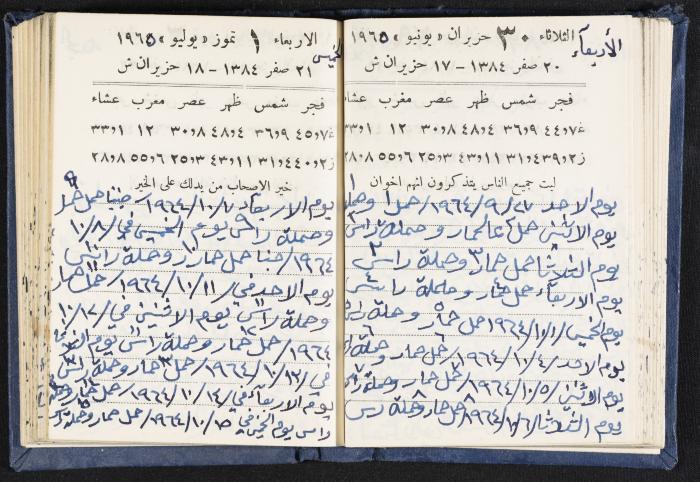 الثلاثاء ٣٠ حزيران «يونيو» ١٩٦٥
الأربعاء
٢٠ صفر ١٣٨٤ - ١٧ حزيران ش
فجر شمس ظهر عصر مغرب عشاء
ليت جميع الناس يتذكرون انهم اخوان
يوم الاحد ٢٧/٩/١٩٦٤/ حمل وحملة
يوم الاثنين حمل حمار وحملة راس
يوم الثلاثا حمل حمار وحملة راس
يوم الاربعاء حمل حمار وحملة راس
يوم الخميس/١/١٠/١٩٦٤ حمل حمار وحملة راس
يوم الاحد/٤/١٠/١٩٦٤/ حمل حمار و حملة راس
يوم الاثنين/٥/١٠/١٩٦٤/ حمل حمار وحملة راس
يوم الثلاثا/٦/١٠/١٩٦٤/ حمل حمار وحملة رس
الاربعاء ١ تموز «يوليو» ١٩٦٥
الخميس
٢١ صفر ١٣٨٤ - ١٨ حزيران ش
فجر شمس ظهر عصر مغرب عشاء
خير الاصحاب من يدلك على الخير
يوم الاربعاء/٧/١٠/١٩٦٤ جبنا حمل حمار
وحملة راس يوم الخميس في/٨/١٠
١٩٦٤/ جبنا حمل حمار وحملة راس
يوم الاحد في/١١/١٠/١٩٦٤/ حمل حمار
وحملة راس يوم الاثنين في/١٢/١٠
١٩٦٤/ حمل حمار وحملة راس يوم
في/١٣/١٠/١٩٦٤/ حمل حمار وحملة راس
يوم الاربعاء في/١٤/١٠/١٩٦٤/ حمل حمار وحملة
راس يوم الخميس في/١٥/١٠/١٩٦٤/ حمل حمار وحملة